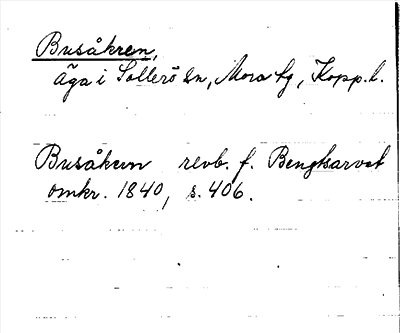 Busåkren,
äga i Sollerö sn, Mora tg, Kopp. l.
Busåkern revb. f. Bengtsarvet
omkr. 1840, s. 406.